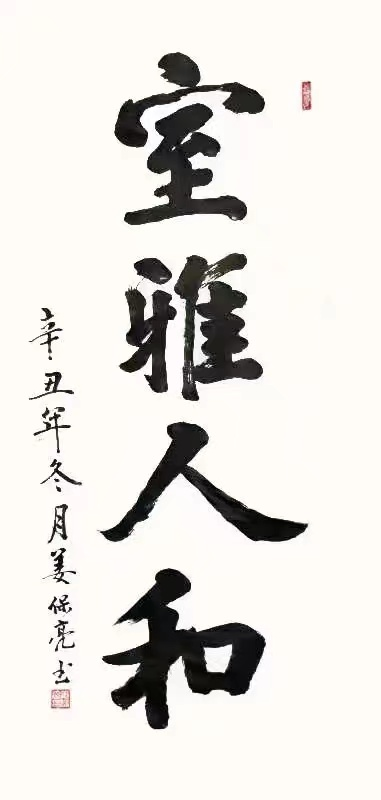 室雅人和
辛丑年冬月姜保亮书